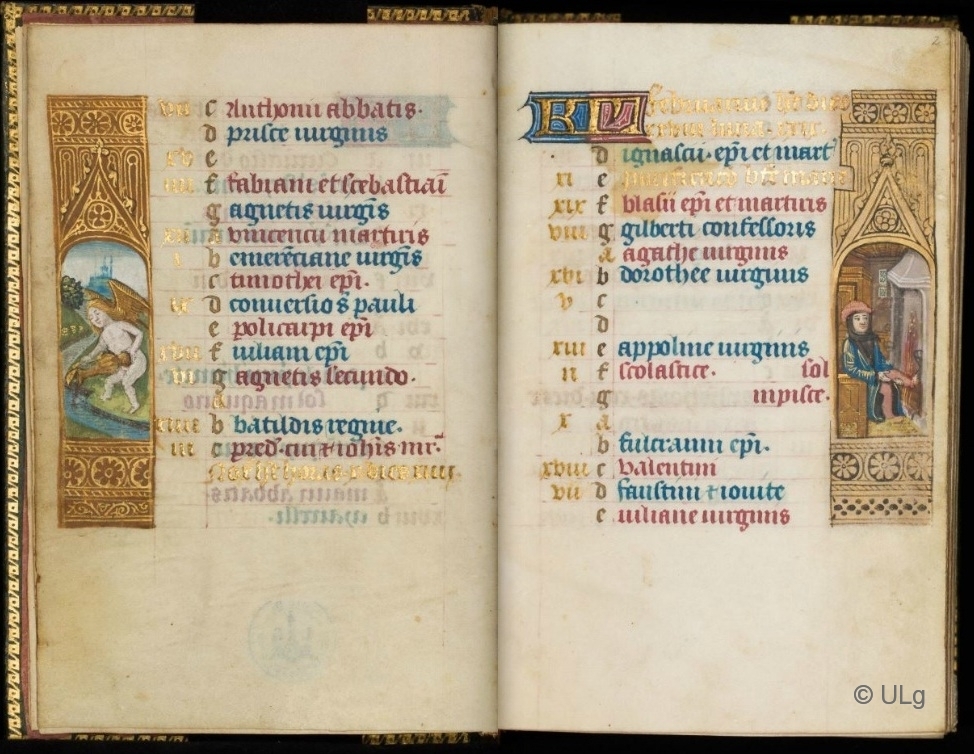 c Anthonii abbatis.
d prisce uirginis
e
iiii f fabiani et sebastiani
g agnetis uirgis
uincencii martiris
i b emerēciane uirgis
c timothei epi.
ix d conuersio s pauli
e policarpi epi
f iuliani epi
g agnetis secundo.
a
b batildis regine.
iii c
KL februarius
d ignacii epi et mart
xi e
xix f blasii epi et martiris
viii g gilberti confessoris
a agathe uirginis
xvi b dorothee uirginis
v c
d
xiii e appoline uirginis
ii f scolastice. sol
g inpisce.
x a
b fulcranni epi.
xviii c Valentini
vii d faustini ⁊ iouite
e iuliane uirginis
© ULg